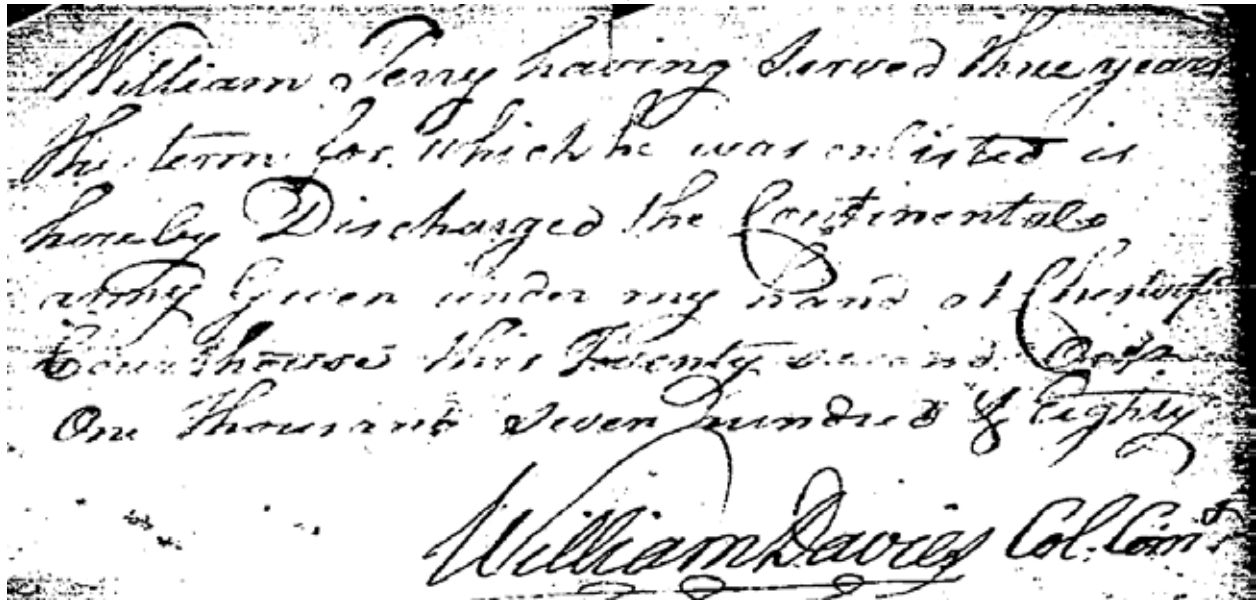 William Terry having Served three years
the term for which he was enlisted is
hereby Discharged the Continental
army Given under my hand at Chesterf
Courthouse this Twenty second
One thousand seven hundred & Eighty
William Davies Col. Com